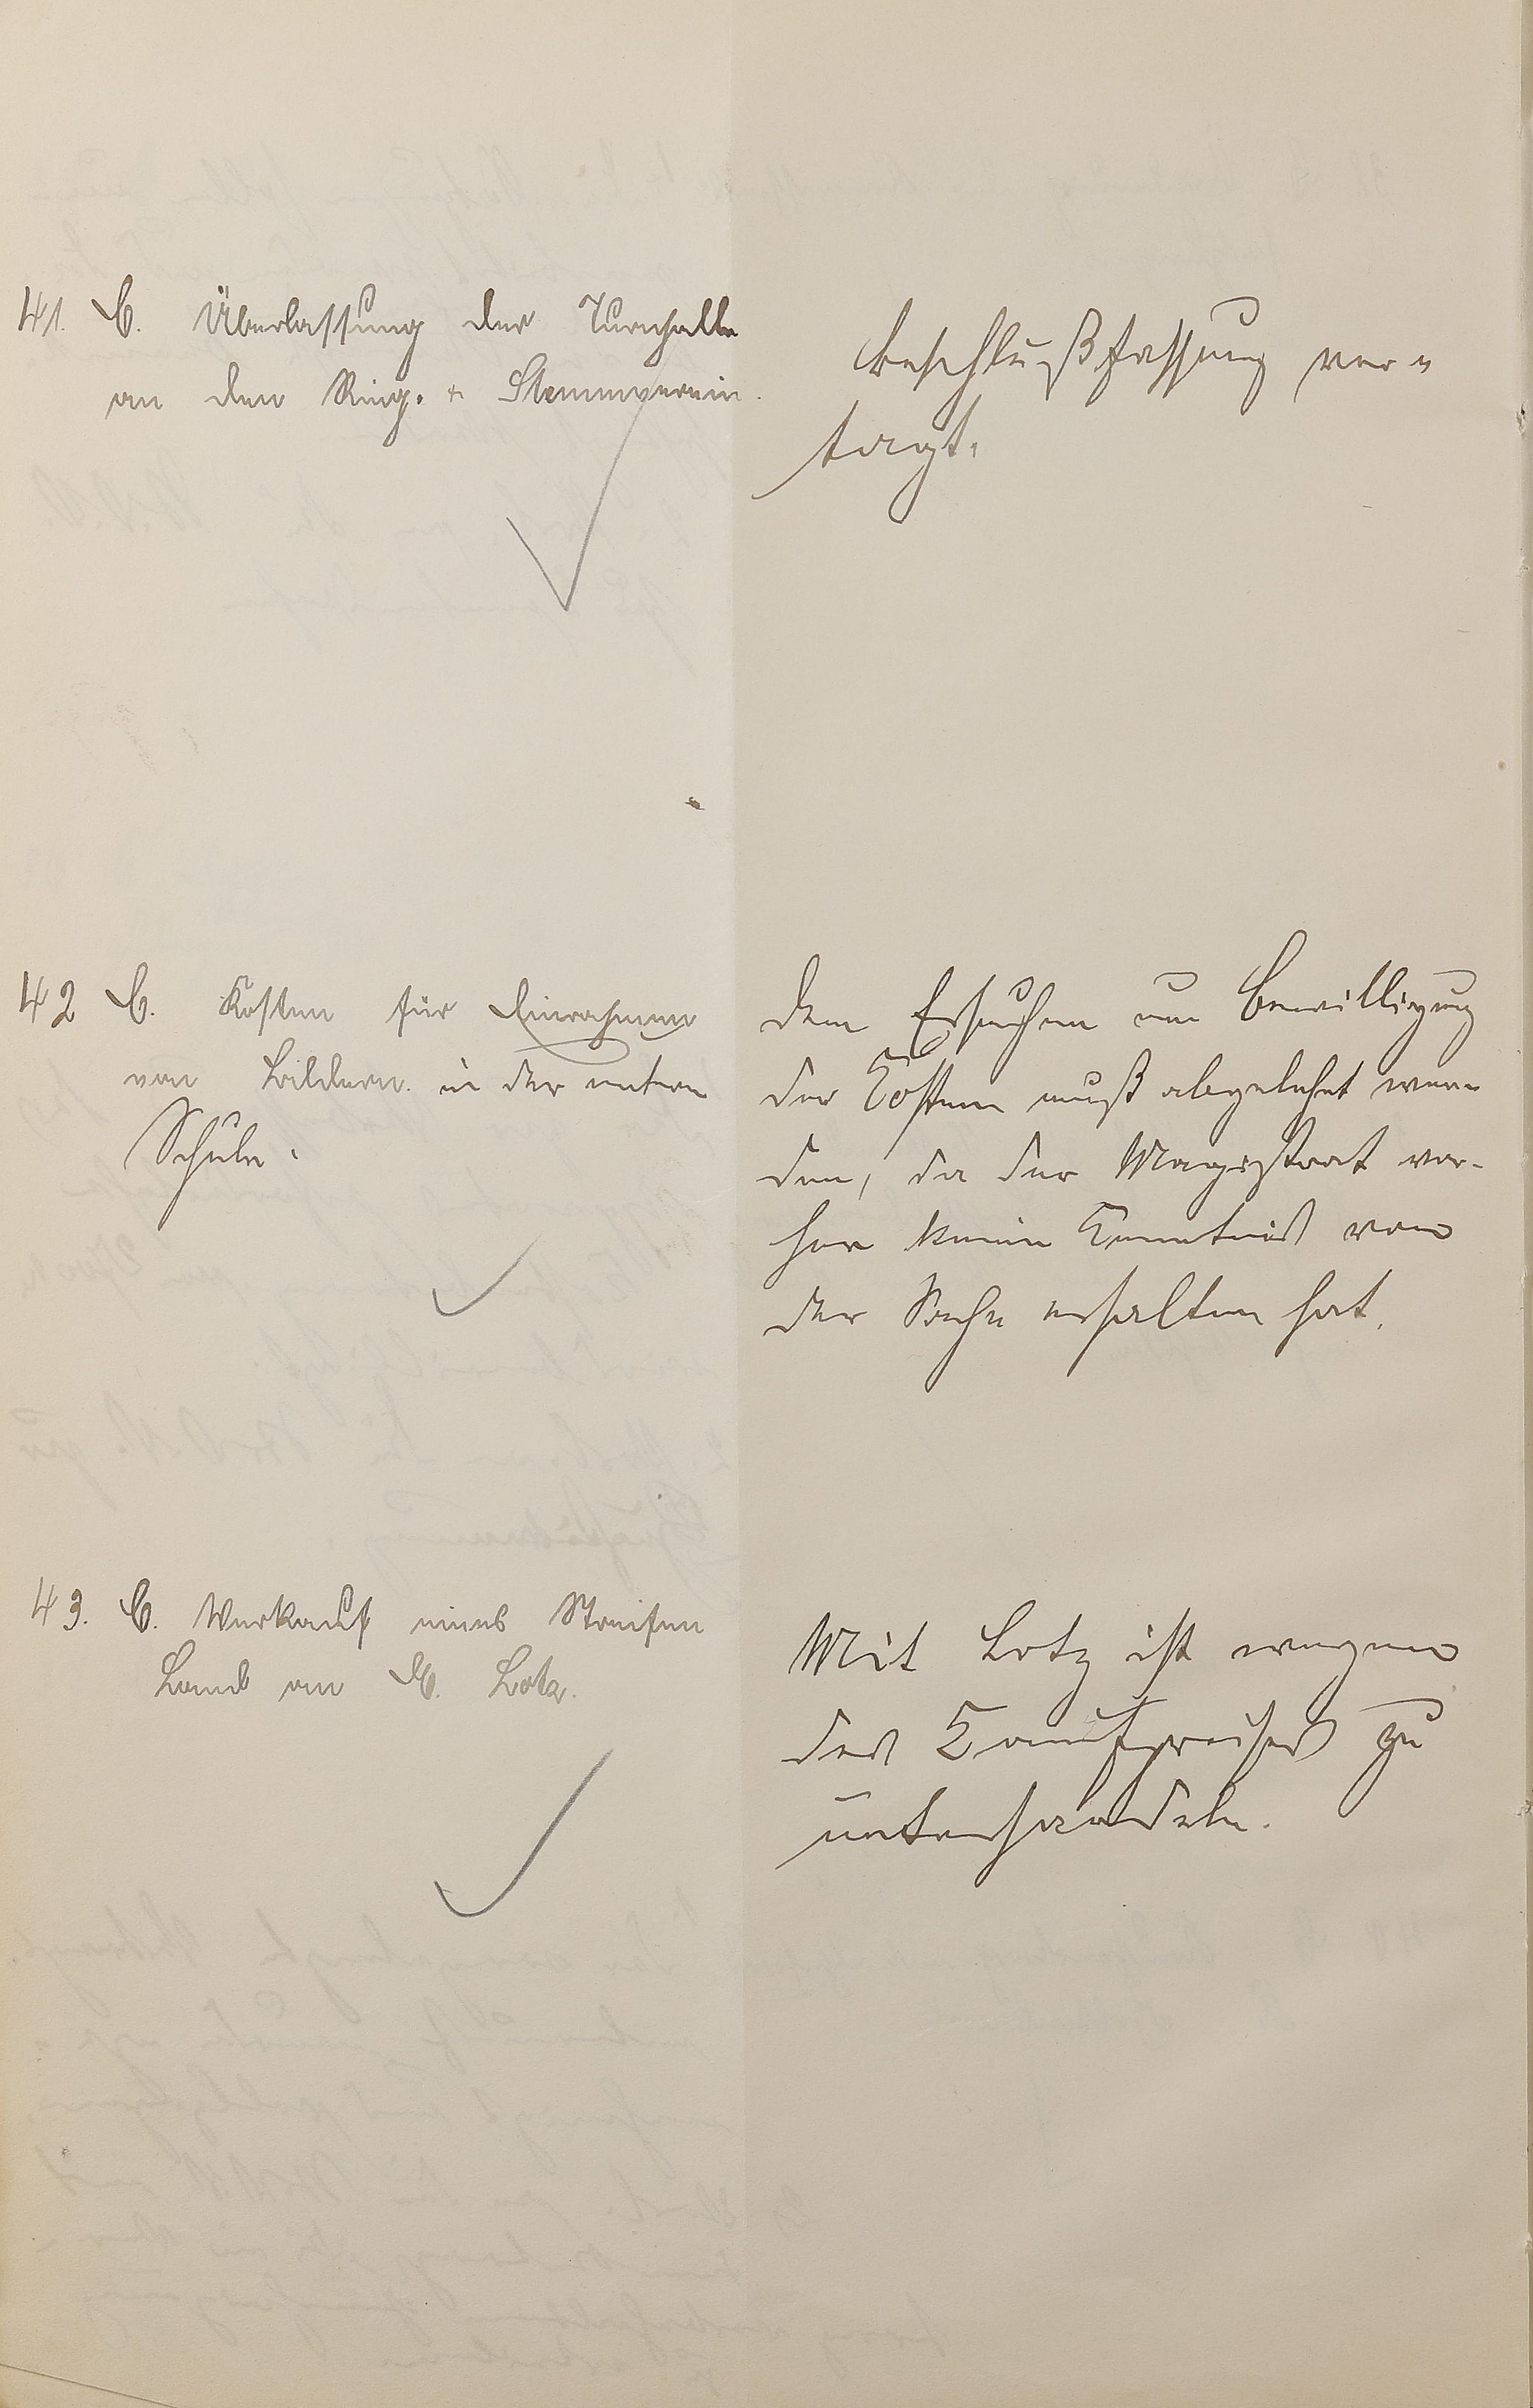 41. C. Überlassung der Turnhalle
an den Ring- & Stemmverein.
Beschlußfassung ver=
tagt.
42 C. Kosten für Einrahmen
von Bildern in der untern
Schule.
Dem Ersuchen um Bewilligung
der Kosten muß abgelehnt wer=
den, da der Magistrat vor-
her keine Kenntnis von
der Sache erhalten hat.
43. C. Verkauf eines Streifen
Land an C. Lotz.
Mit Lotz ist wegen
des Kaufpreises zu
unterhandeln.